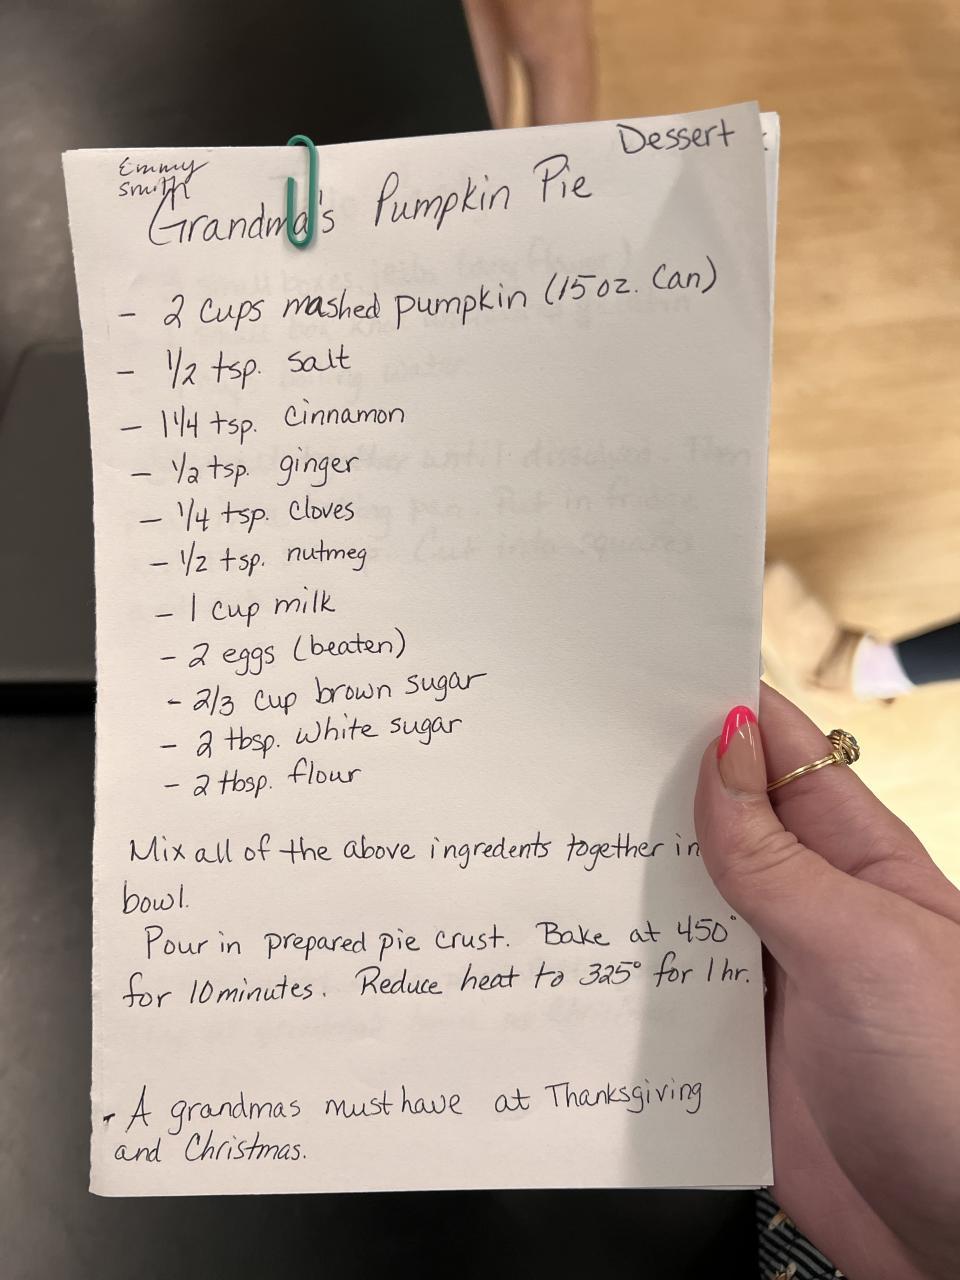 Dessert
Emmy
Smith
Grandma's Pumpkin Pie
- 2 cups mashed pumpkin (15 oz. Can)
- 1/2 tsp. salt
- 1 1/4 tsp. cinnamon
- 1/2 tsp. ginger
- 1/4 tsp. cloves
- 1/2 tsp. nutmeg
- 1 cup milk
- 2 eggs (beaten)
- 2/3 cup brown sugar
- 2 tbsp. white sugar
- 2 tbsp. flour
Mix all of the above ingredents together in
bowl.
Pour in prepared pie crust. Bake at 450°
for 10 minutes. Reduce heat to 325° for 1 hr.
- A grandmas must have at Thanksgiving
and Christmas.